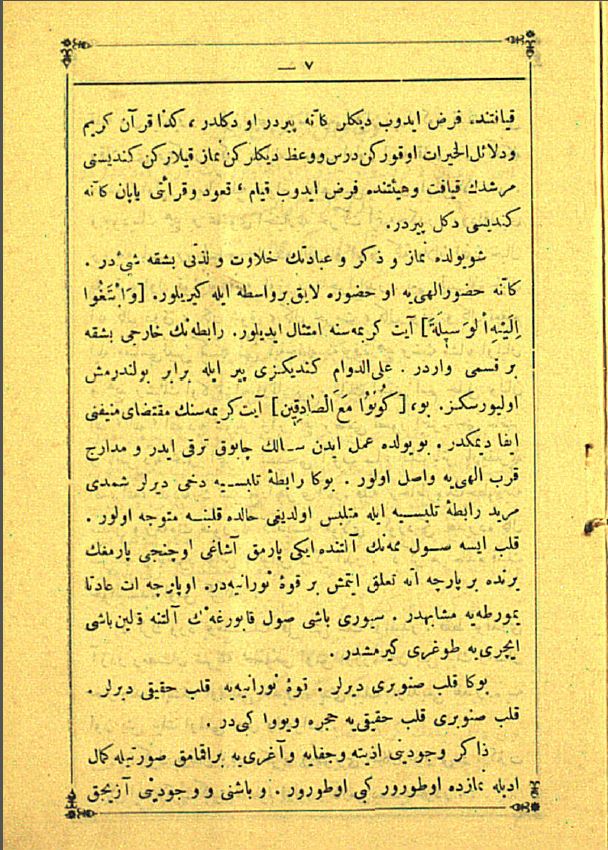 — ٧ —
قيافتنده فرض ايدوب ديكلر كأنه پيردر او دكلدر، كذا قرآن كريم
ودلائل الخيرات اوقوركن درس ووعظ ديكلركن نماز قيلاركن كنديسنى
مرشدك قيافت وهيئتنده فرض ايدوب قيام، قعود وقرائتى ياپان كأنه
كنديسى دكل پيردر.
شويولده نماز و ذكر و عبادتك حلاوت و لذتى بشقه شئ در.
كأنه حضور الهى‌يه او حضوره لايق برواسطه ايله كيريلور. [وَابْتَغُوا
اِلَيْهِ الْوَسِيلَةَ] آيت كريمه‌سنه امتثال ايديلور. رابطه‌نك خارجى بشقه
بر قسمى واردر. على الدوام كنديكزى پير ايله برابر بولندرمش
اوليورسكز. بو، [كُونُوا مَعَ الصَّادِقِين] آيت كريمه‌سنك مقتضاى منيفنى
ايفا ديمكدر. بو يولده عمل ايدن سالك چابوق ترقى ايدر و مدارج
قرب الهى‌يه واصل اولور. بوكا رابطهٔ تلبسيه دخى ديرلر شمدى
مريد رابطهٔ تلبسيه ايله متلبس اولديغى حالده قلبنه متوجه اولور.
قلب ايسه صول ممه‌نك آلتنده ايكى پارمق آشاغى اوچنجى پارمغك
يرنده بر پارچه اته تعلق ايتمش بر قوهٔ نورانيه‌در. اوپارچه ات عادتا
يمورطه‌يه مشابهدر. سيورى باشى صول قابورغه‌نك آلتنه قالين باشى
ايچرى‌يه طوغرى كيرمشدر.
بوكا قلب صنوبرى ديرلر. قوهٔ نورانيه‌يه قلب حقيقى ديرلر.
قلب صنوبرى قلب حقيقى‌يه حجره ويووا كى در.
ذاكر وجودينى اذيته وجفايه وآغرى‌يه براقمامق صورتيله كمال
ادبله نمازده اوطورور كبى اوطورور. و باشنى و وجودينى آزيجق